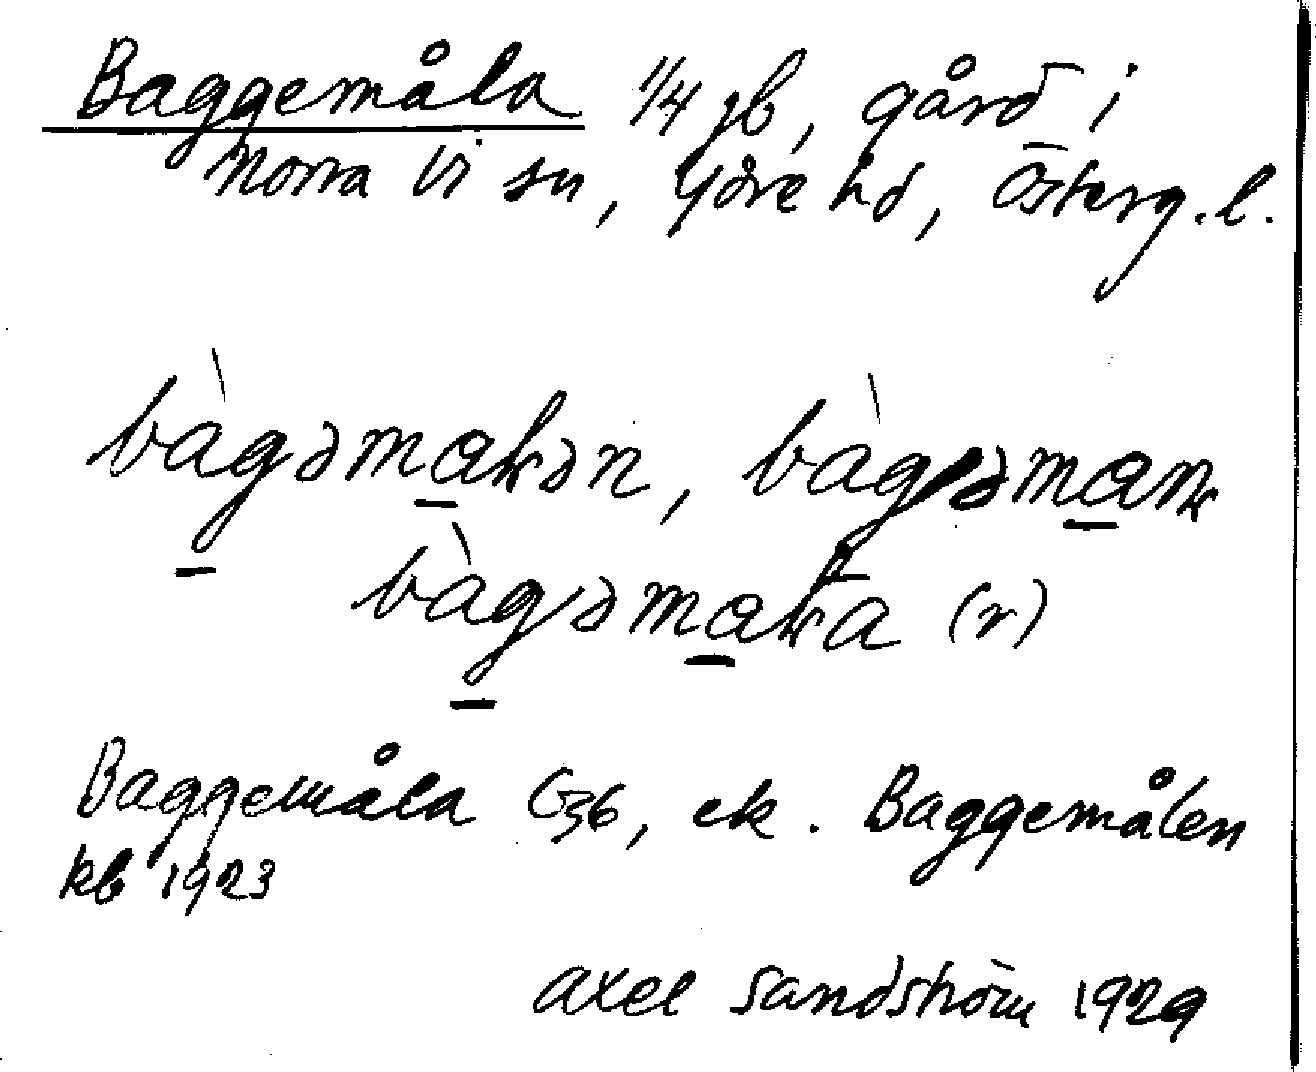 Baggemåla 1/4 jb, gård i
Norra Vi sn, Ydre hd, Österg. l.
bàgəmaƚən, bàgəman
bàgəmaƚa (r)
Baggemåla G36, ek. Baggemålen
kb 1923
Axel Sandström 1929